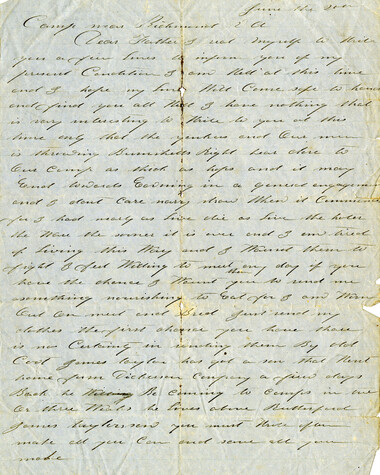 June the 20th
Camp near Richmond Va
Dear Father I seat myself to write
you a few lines to inform you of my
present Condition I am Well at this time
and I hope my lines Will Come safe to hand
and find you all Well I have nothing that
is very interesting to Write to you at this
time only that the yankees and Our men
is throwing Bumshells Right hear close to
Our Camp as thick as hops and it may
tend towards Coming in a general engagement
and I dont Care narry how When it Commences
for I had narly as live die as live the holer
the War the sooner it is over and I am tired
of living this Way and I Want them to
fight I feel Willing to meet them any day if you
have the chance I Want you to send me
something nourishing to Eat for I am Worn
Out On meet and Bred Just send my
clothes the first chance you have thare
is no Certainty in sending them By old
Cool James Taylor has got a son that Went
home from Dickerson Company a few days
Back he Will Be coming to Camps in one
Or three Weeks he lives above Rutherford
James Taylors son you must Write if you
make all you Can and save all you
make